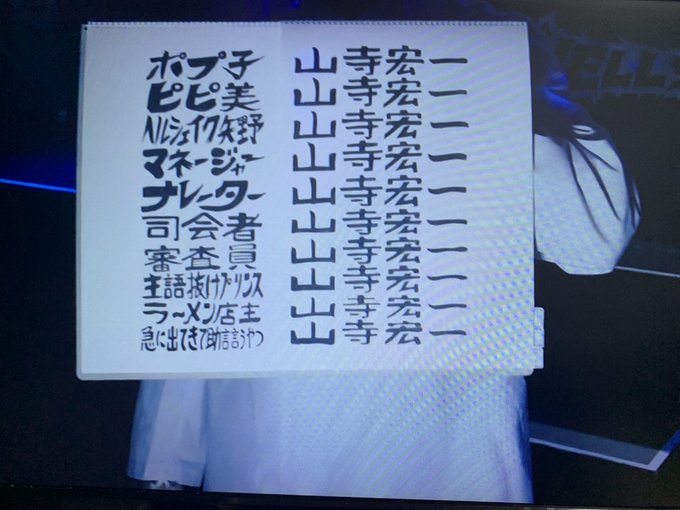 ポプ子 山寺宏一
ピピ美 山寺宏一
ヘルシェイク矢野 山寺宏一
マネージャー 山寺宏一
ナレーター 山寺宏一
司会者 山寺宏一
審査員 山寺宏一
主語抜けプリンス 山寺宏一
ラーメン店主 山寺宏一
急に出てきて助言言うやつ 山寺宏一